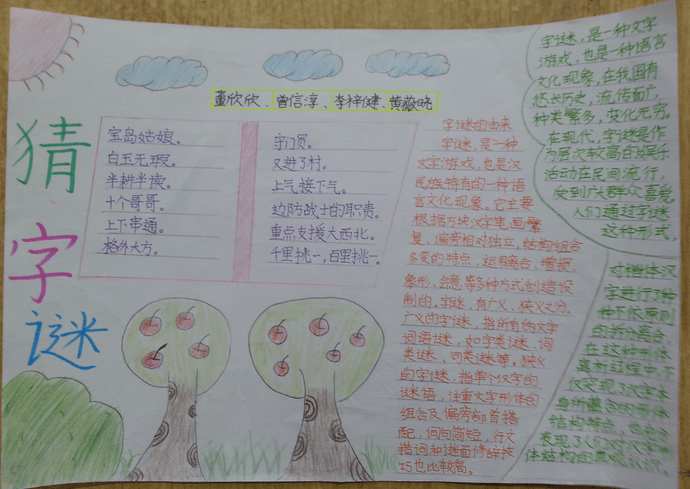 猜
字
谜
董欣欣、曾信淳、李梓健、黄薇晓
宝岛姑娘。
白玉无瑕。
半耕半读。
十个哥哥。
上下串通。
格外大方。
守门员。
又进了村。
上气接下气。
边防战士的职责。
重点支援大西北。
千里挑一,百里挑一。
字谜的由来
字谜,是一种
文字游戏,也是汉
民族特有的一种语
言文化现象。它主要
根据方块汉字笔画繁
复、偏旁相对独立,结构组合
多变的特点,运用离合、增损、
象形、会意等多种方式创造设
制的。字谜,有广义、狭义之分。
广义的字谜,指所有的文字
词语谜,如字类谜、词
类谜、句类谜等。狭义
的字谜,指单个汉字的
谜语,注重文字形体的
组合及偏旁部首搭
配,词句简短,行文
措词和谜面修辞技
巧也比较高。
字谜,是一种文字
游戏,也是一种语言
文化现象,在我国有
悠长历史,流传面广,
种类繁多,变化无穷。
在现代,字谜是作
为层次较高的娱乐
活动在民间流行,
受到广大群众喜爱。
人们通过字谜
这种形式,
对楷体汉
字进行了种
种不依原则
的拆拼离合,
在这种形体
离析过程中,不
仅实现了汉字本
身所蕴含的形体
结构特点,也折
表现了人们对汉字形
体结构的